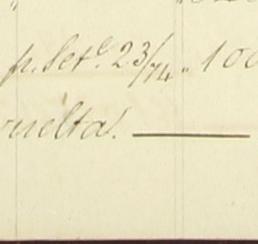 p. Set.e 23/74 " 100
vuelta. ———